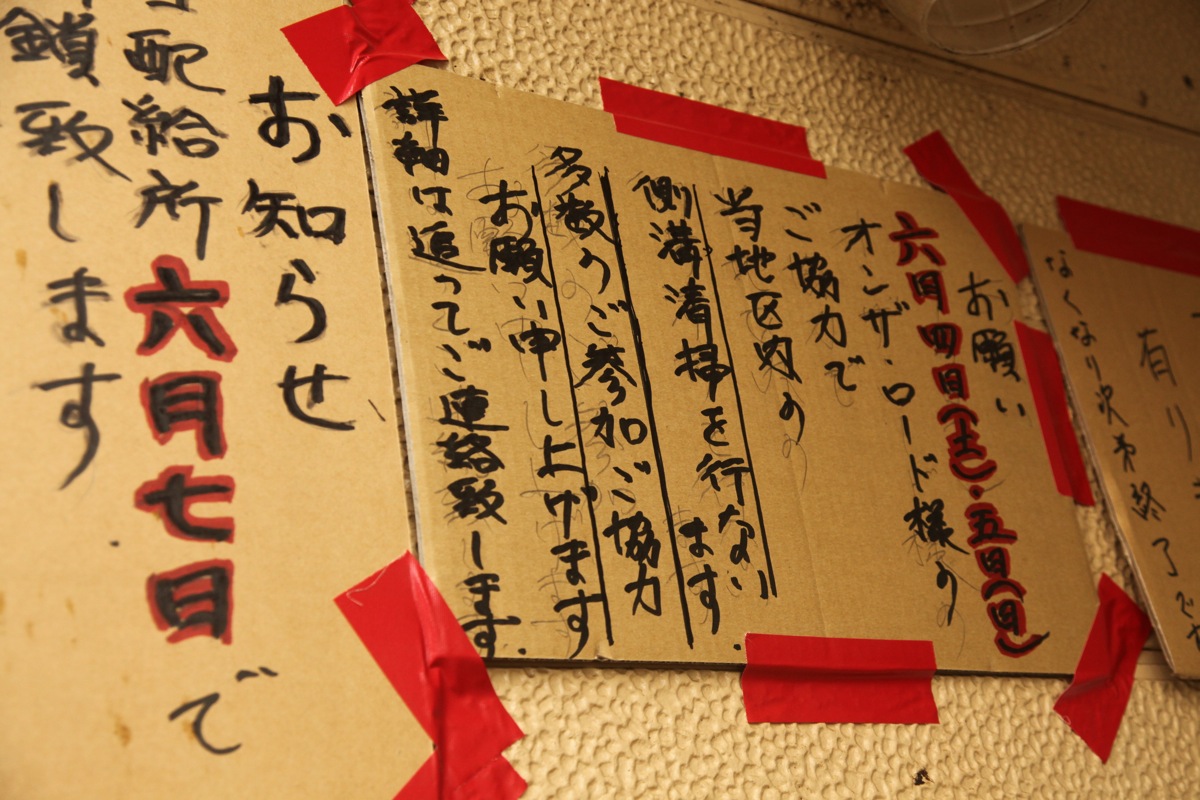 有り
なくなり次第終了
お願い
六月四日(土)・五日(日)
オン・ザ・ロード様の
ご協力で
当地区内の
側溝清掃を行ない
ます。
多数のご参加ご協力
お願い申し上げます
詳細は追ってご連絡致します。
お知らせ
配給所六月七日で
鎖致します